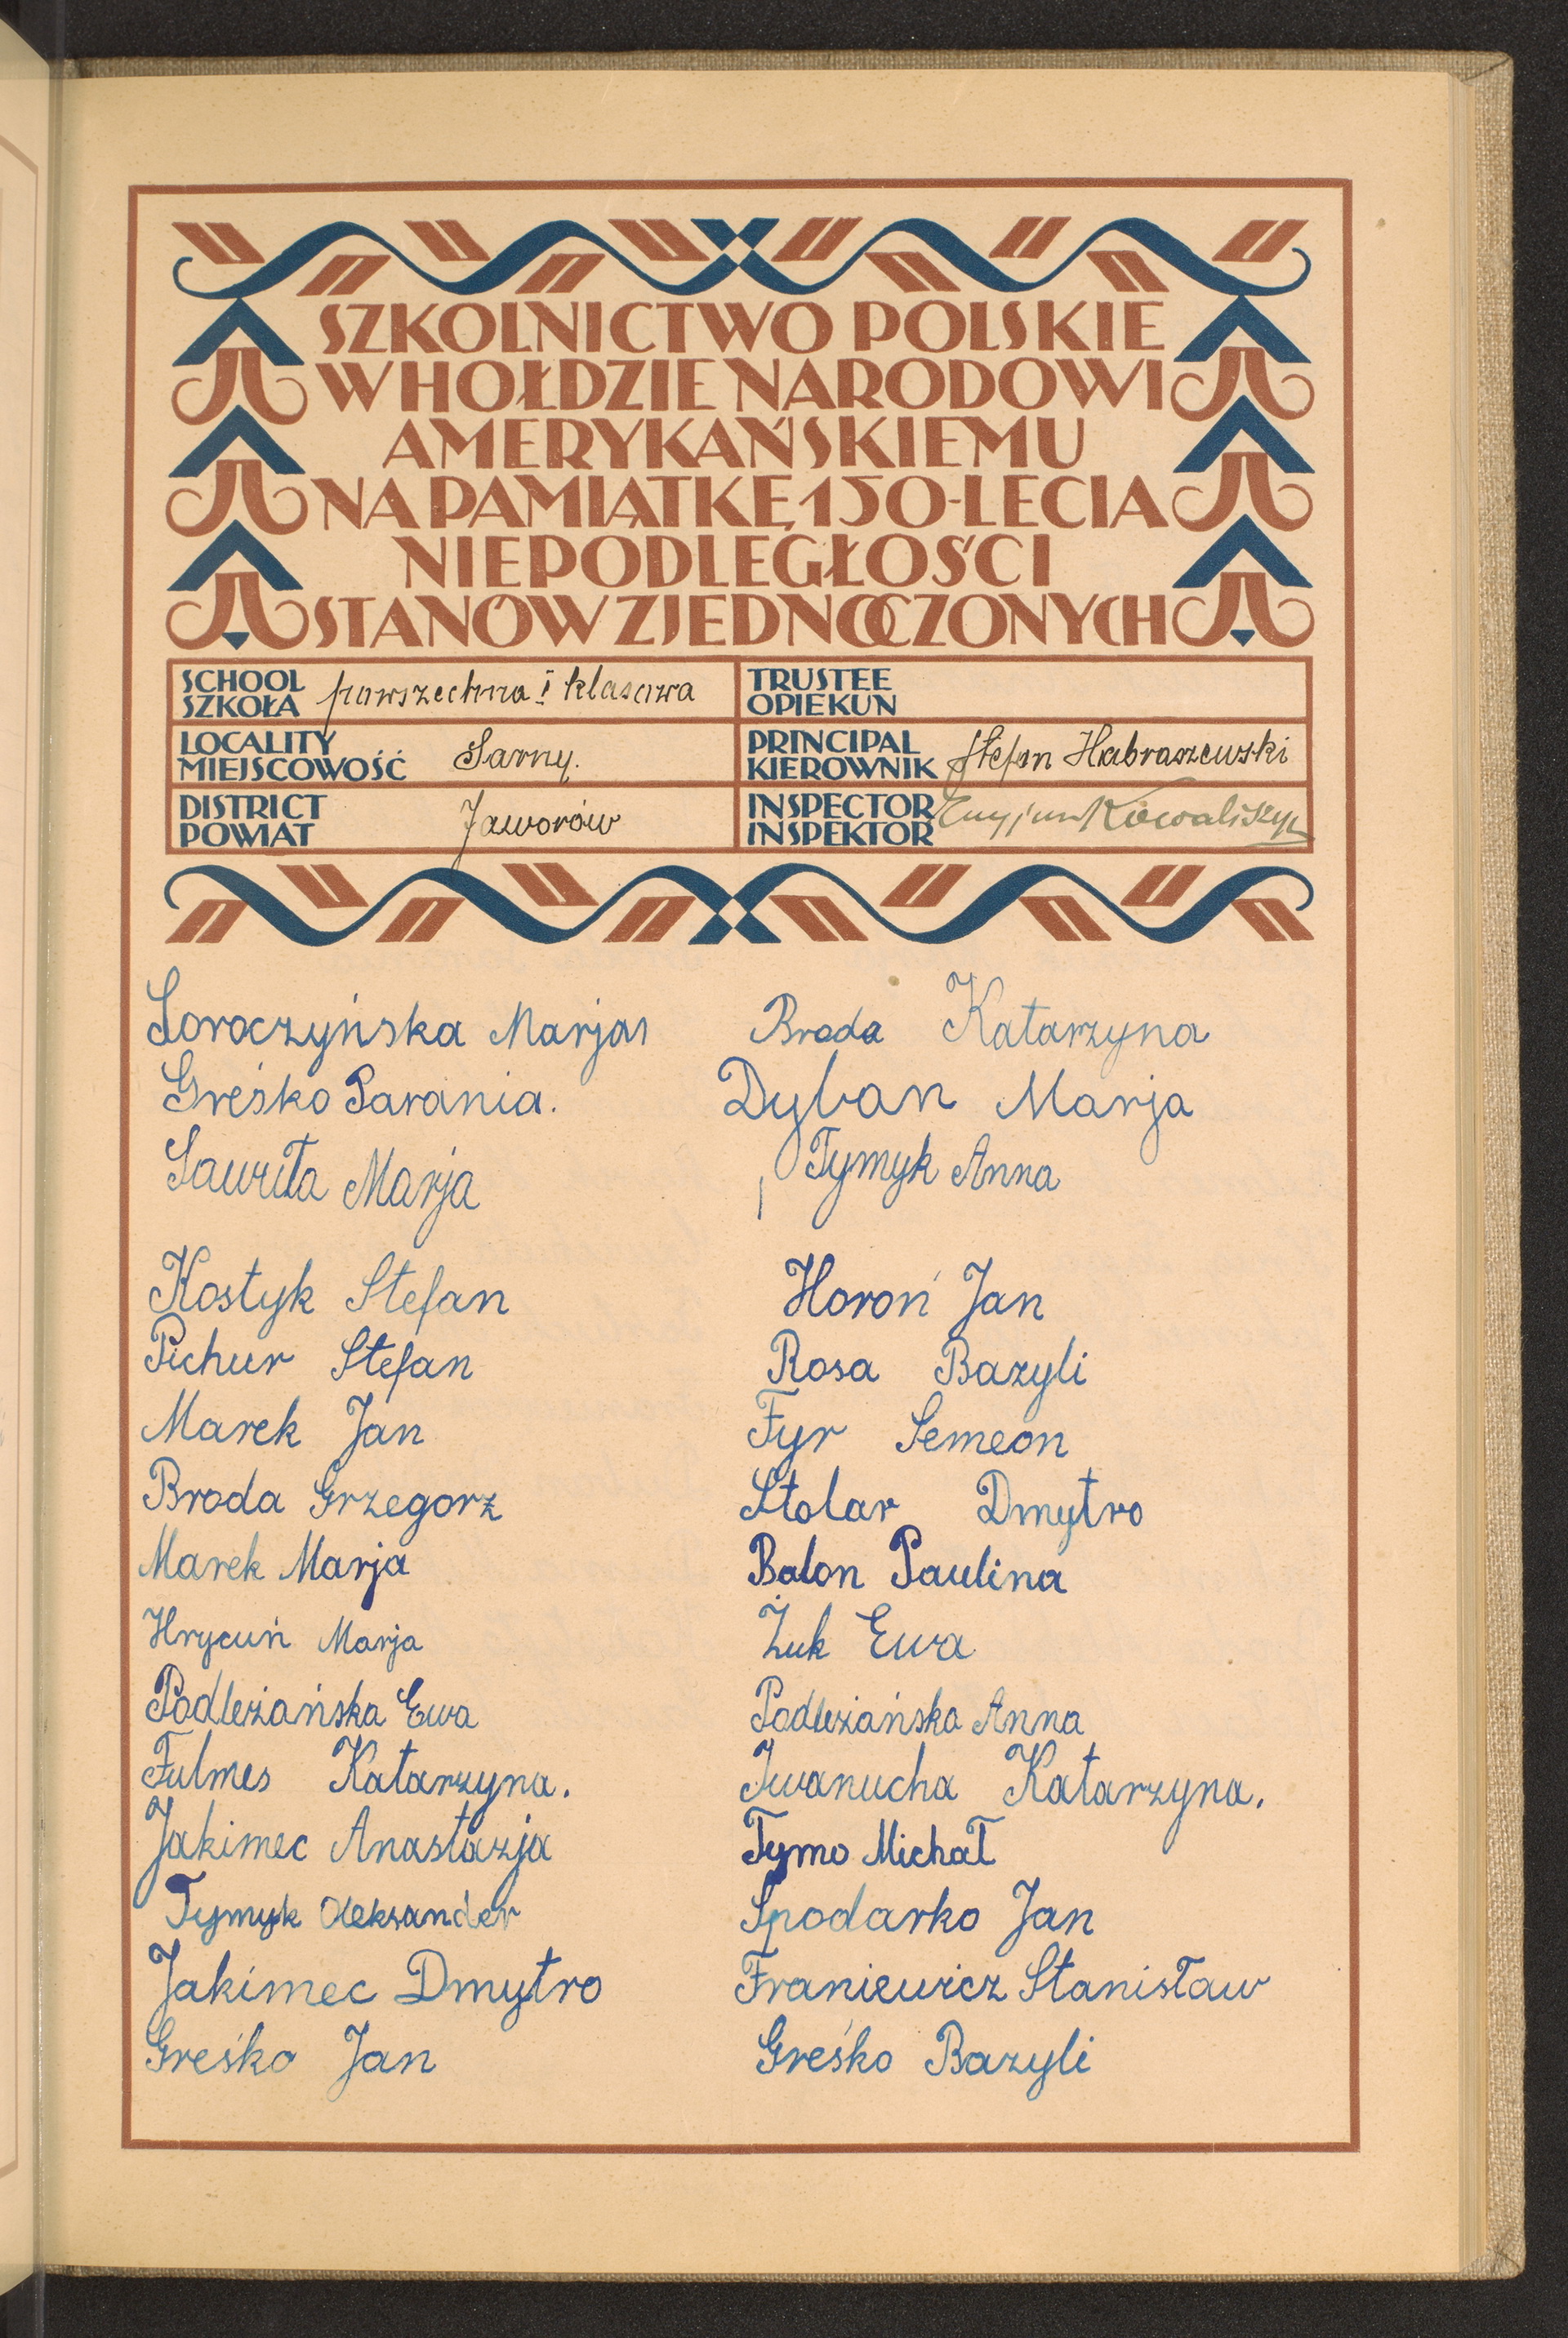 SZKOLNICTWO POLSKIE
W HOŁDZIE NARODOWI
AMERYKAŃSKIEMU
NA PAMIĄTKĘ 150-LECIA
NIEPODLEGŁOŚCI
STANÓW ZJEDNOCZONYCH
SCHOOL
SZKOŁA powszechna I klasowa
TRUSTEE
OPIEKUN
LOCALITY
MIEJSCOWOŚĆ Sarny.
PRINCIPAL
KIEROWNIK Stefan Habraszewski
DISTRICT
POWIAT Jaworów
INSPECTOR
INSPEKTOR Kowaliszyn
Soroczyńska Marja
Greśko Parania.
Sawuła Marja
Kostyk Stefan
Pichur Stefan
Marek Jan
Broda Grzegorz
Marek Marja
Hrycuń Marja
Podleżańska Ewa
Fulmes Katarzyna.
Jakimec Anastazja
Tymyk Oleksander
Jakimec Dmytro
Greśko Jan
Broda Katarzyna
Dyban Marja
Tymyk Anna
Horoń Jan
Rosa Bazyli
Fyr Semeon
Stolar Dmytro
Balon Paulina
Żuk Ewa
Podleżańska Anna
Iwanucha Katarzyna.
Tymo Michał
Spodarko Jan
Franiewicz Stanisław
Greśko Bazyli